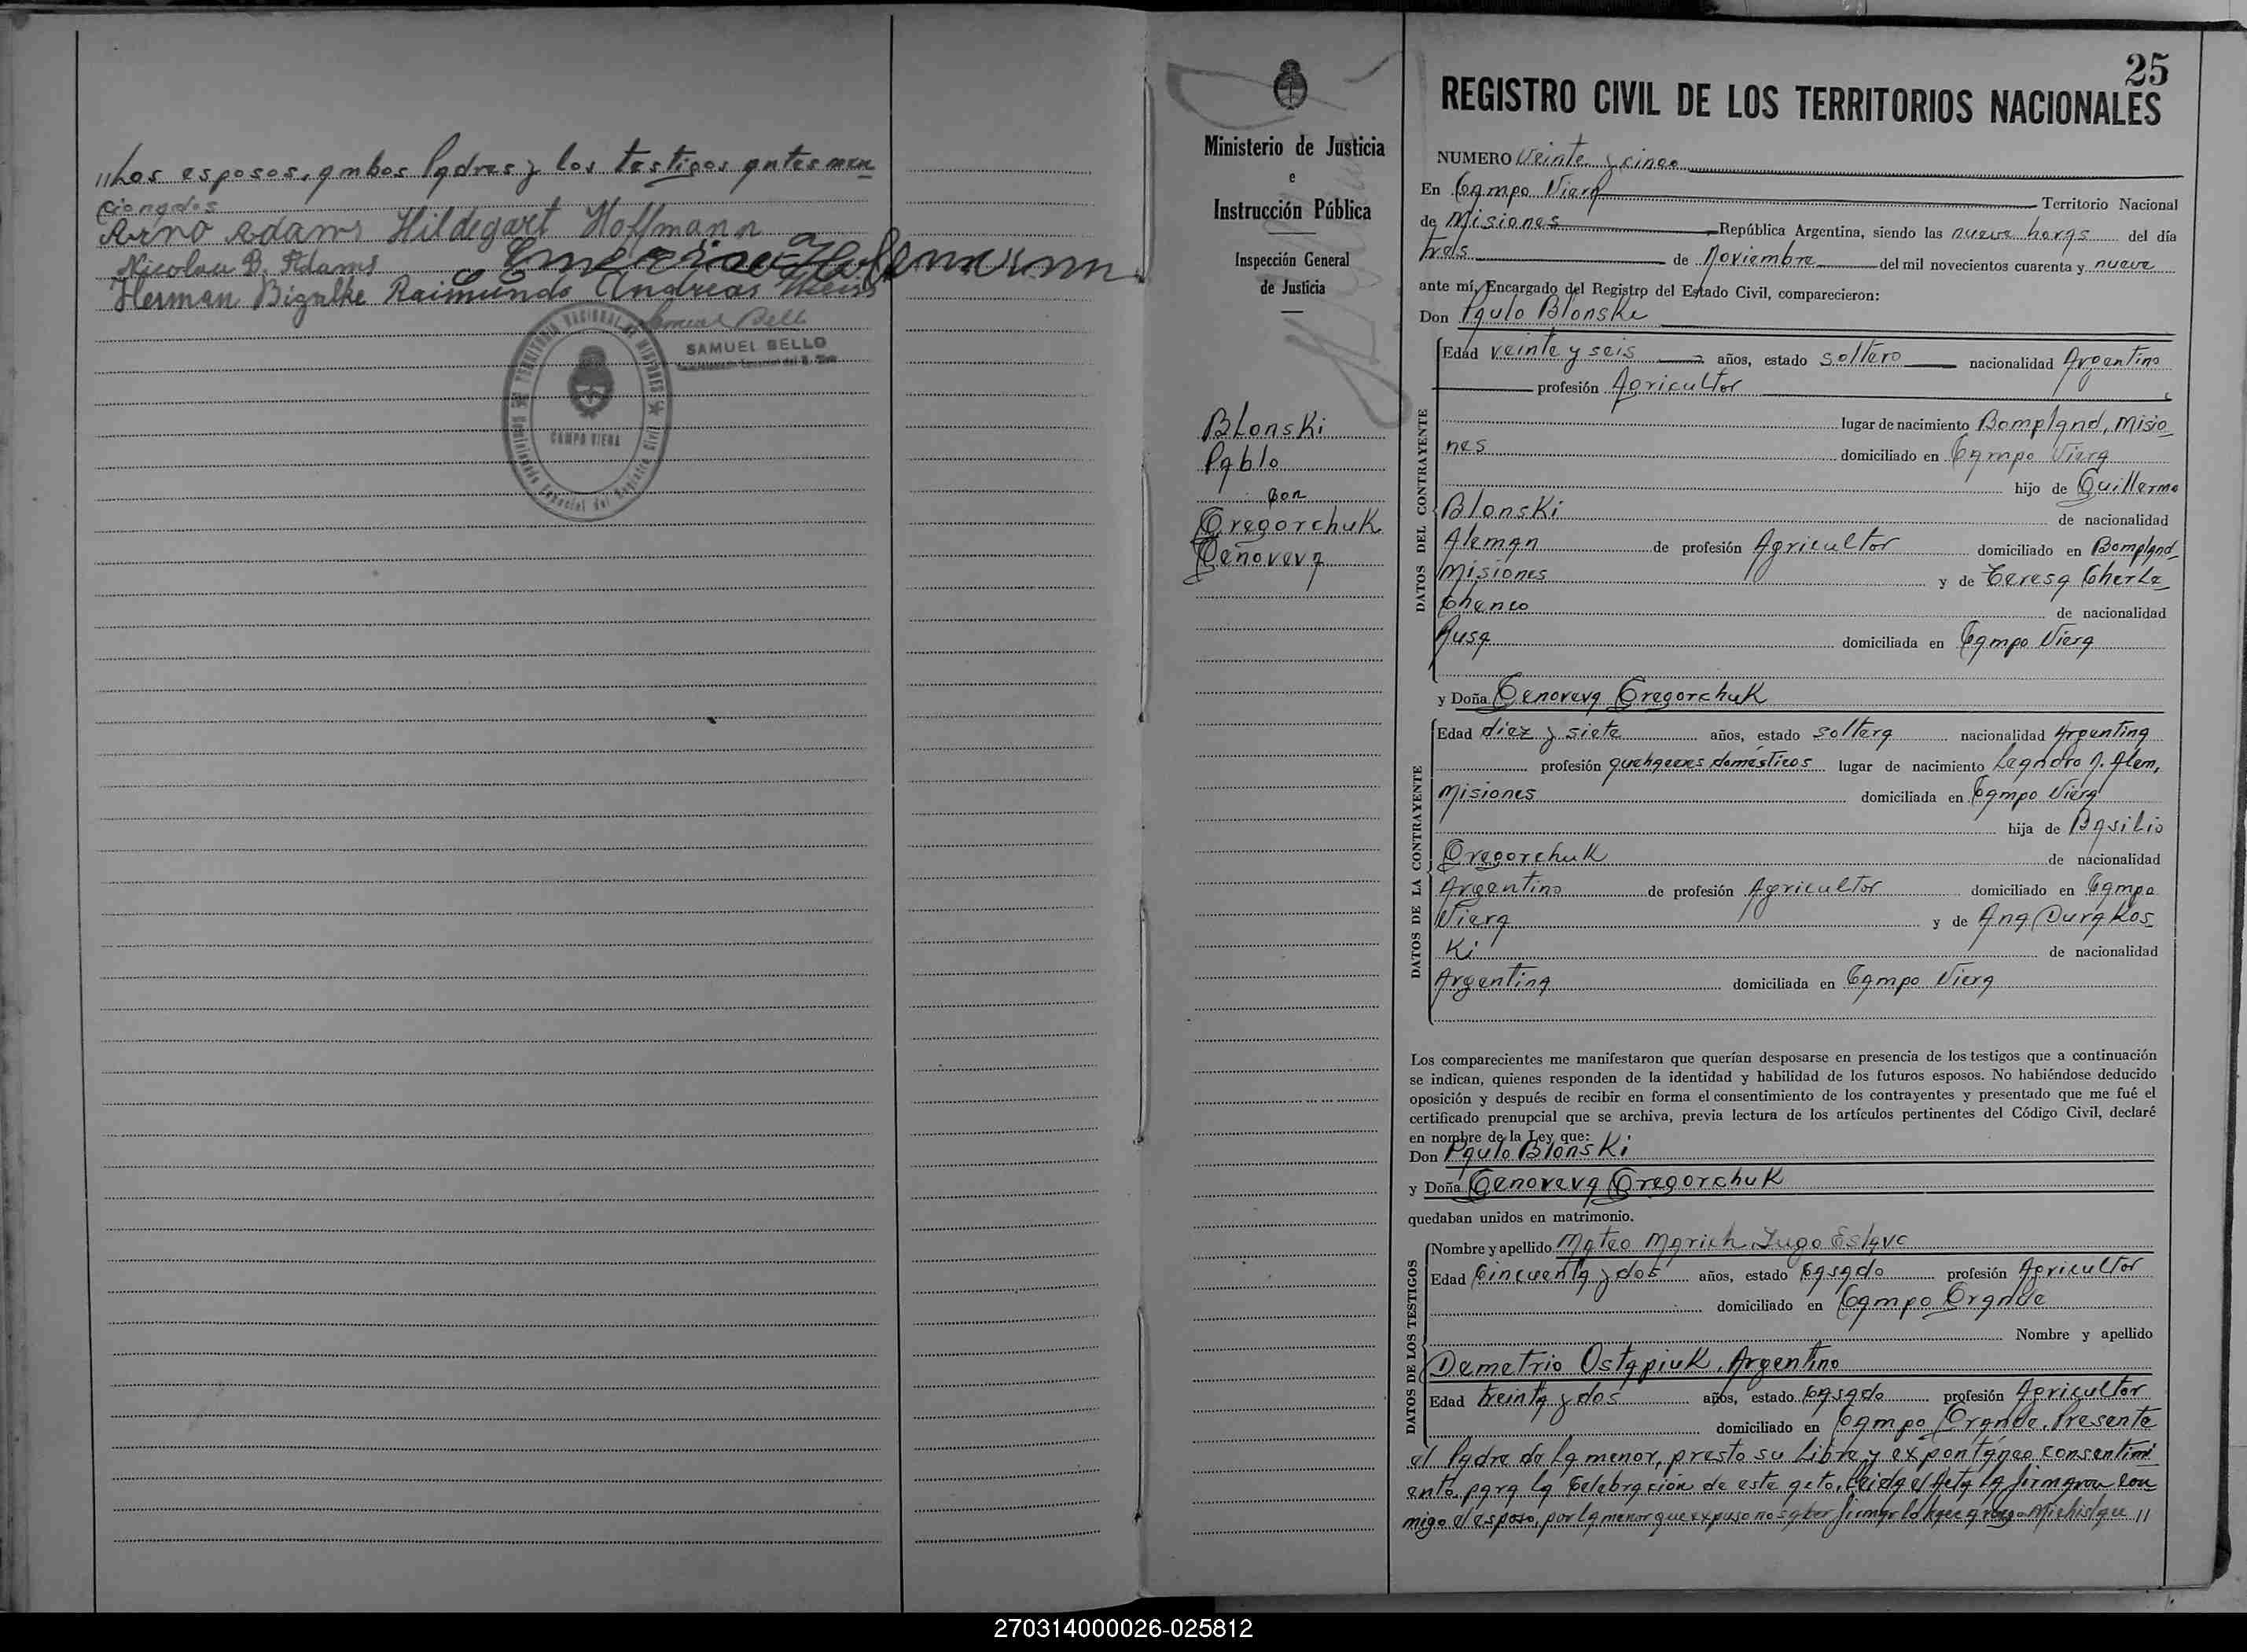 "Los esposos, ambos Padres y los testigos antes men
cionados
Arno Adams Hildegart Hoffmann
Nicolau B. Adams
Herman Bigalke Raimundo Andreas
Samuel Bello
SAMUEL BELLO
TERRITORIO NACIONAL DE MISIONES
CAMPO VIERA
25
REGISTRO CIVIL DE LOS TERRITORIOS NACIONALES
Ministerio de Justicia
e
Instrucción Pública
Inspección General
de Justicia
Blonski
Pablo
con
Gregorchuk
Genoveva
NUMERO Veinte y cinco
En Campo Viera Territorio Nacional
de Misiones República Argentina, siendo las nueve horas del día
tres de Noviembre del mil novecientos cuarenta y nueve
ante mí, Encargado del Registro del Estado Civil, comparecieron:
Don Paulo Blonski
DATOS DEL CONTRAYENTE
Edad veinte y seis años, estado soltero nacionalidad Argentino
profesión Agricultor
lugar de nacimiento Bompland, Misio
nes domiciliado en Campo Viera
hijo de Guillermo
Blonski de nacionalidad
Aleman de profesión Agricultor domiciliado en Bompland
Misiones y de Teresa Cherke
chenco de nacionalidad
Rusa domiciliada en Campo Viera
y Doña Genoveva Gregorchuk
DATOS DE LA CONTRAYENTE
Edad diez y siete años, estado soltera nacionalidad Argentina
profesión quehaceres domésticos lugar de nacimiento Leandro N. Alem,
Misiones domiciliada en Campo Viera
hija de Basilio
Gregorchuk de nacionalidad
Argentino de profesión Agricultor domiciliado en Campo
Viera y de Ana Durakos
ki de nacionalidad
Argentina domiciliada en Campo Viera
Los comparecientes me manifestaron que querían desposarse en presencia de los testigos que a continuación
se indican, quienes responden de la identidad y habilidad de los futuros esposos. No habiéndose deducido
oposición y después de recibir en forma el consentimiento de los contrayentes y presentado que me fué el
certificado prenupcial que se archiva, previa lectura de los artículos pertinentes del Código Civil, declaré
en nombre de la Ley que:
Don Paulo Blonski
y Doña Genoveva Gregorchuk
quedaban unidos en matrimonio.
DATOS DE LOS TESTIGOS
Nombre y apellido Mateo Marich Jugo Eslavo
Edad Cincuenta y dos años, estado Casado profesión Agricultor
domiciliado en Campo Grande
Nombre y apellido
Demetrio Ostapiuk, Argentino
Edad treinta y dos años, estado Casado profesión Agricultor
domiciliado en Campo Grande. Presente
el Padre de la menor, presto su libre y expontáneo consentimi
ento para la Celebración de este acto. Leida el Acta la firmaron con
migo el esposo, por la menor que expuso no saber firmar lo hace a ruego "
270314000026-025812